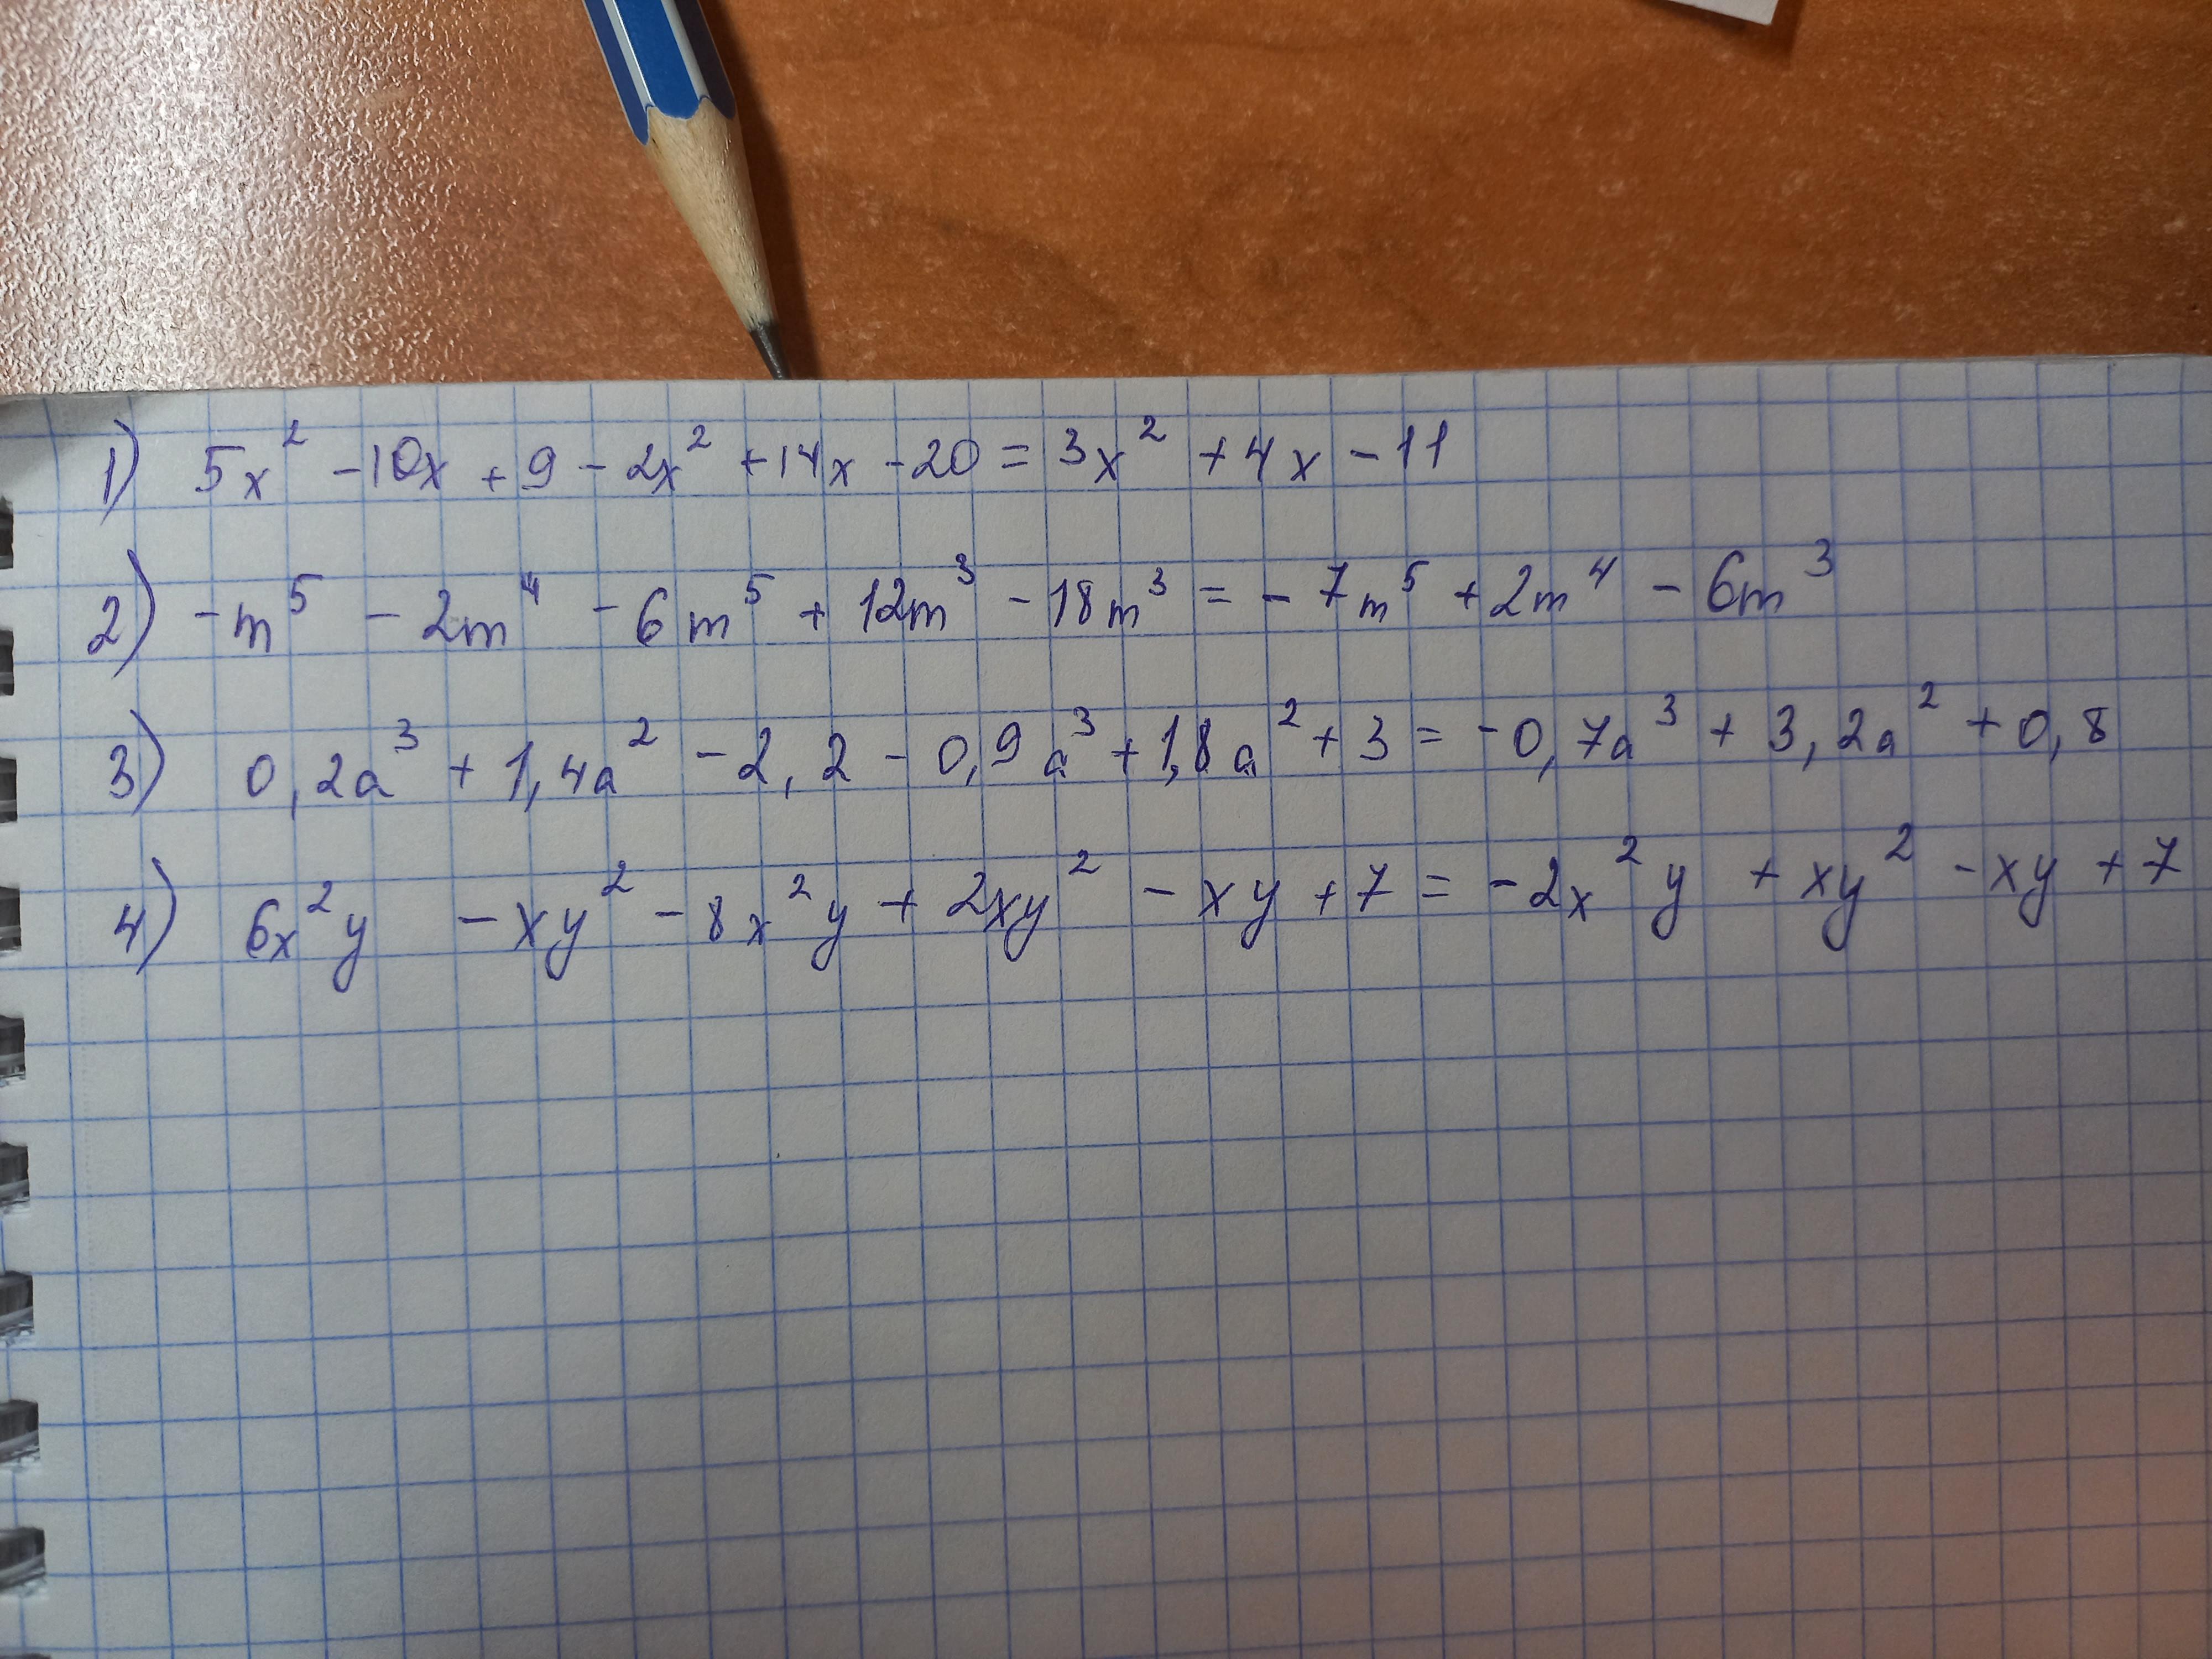 1) 5x² -10x + 9 - 2x² + 14x - 20 = 3x² + 4x - 11
2) - m⁵ - 2m⁴ - 6m⁵ + 12m³ - 18m³ = - 7m⁵ + 2m⁴ - 6m³
3) 0,2a³ + 1,4a² - 2,2 - 0,9a³ + 1,8a² + 3 = - 0,7a³ + 3,2a² + 0,8
4) 6x²y - xy² - 8x²y + 2xy² - xy + 7 = - 2x²y + xy² - xy + 7